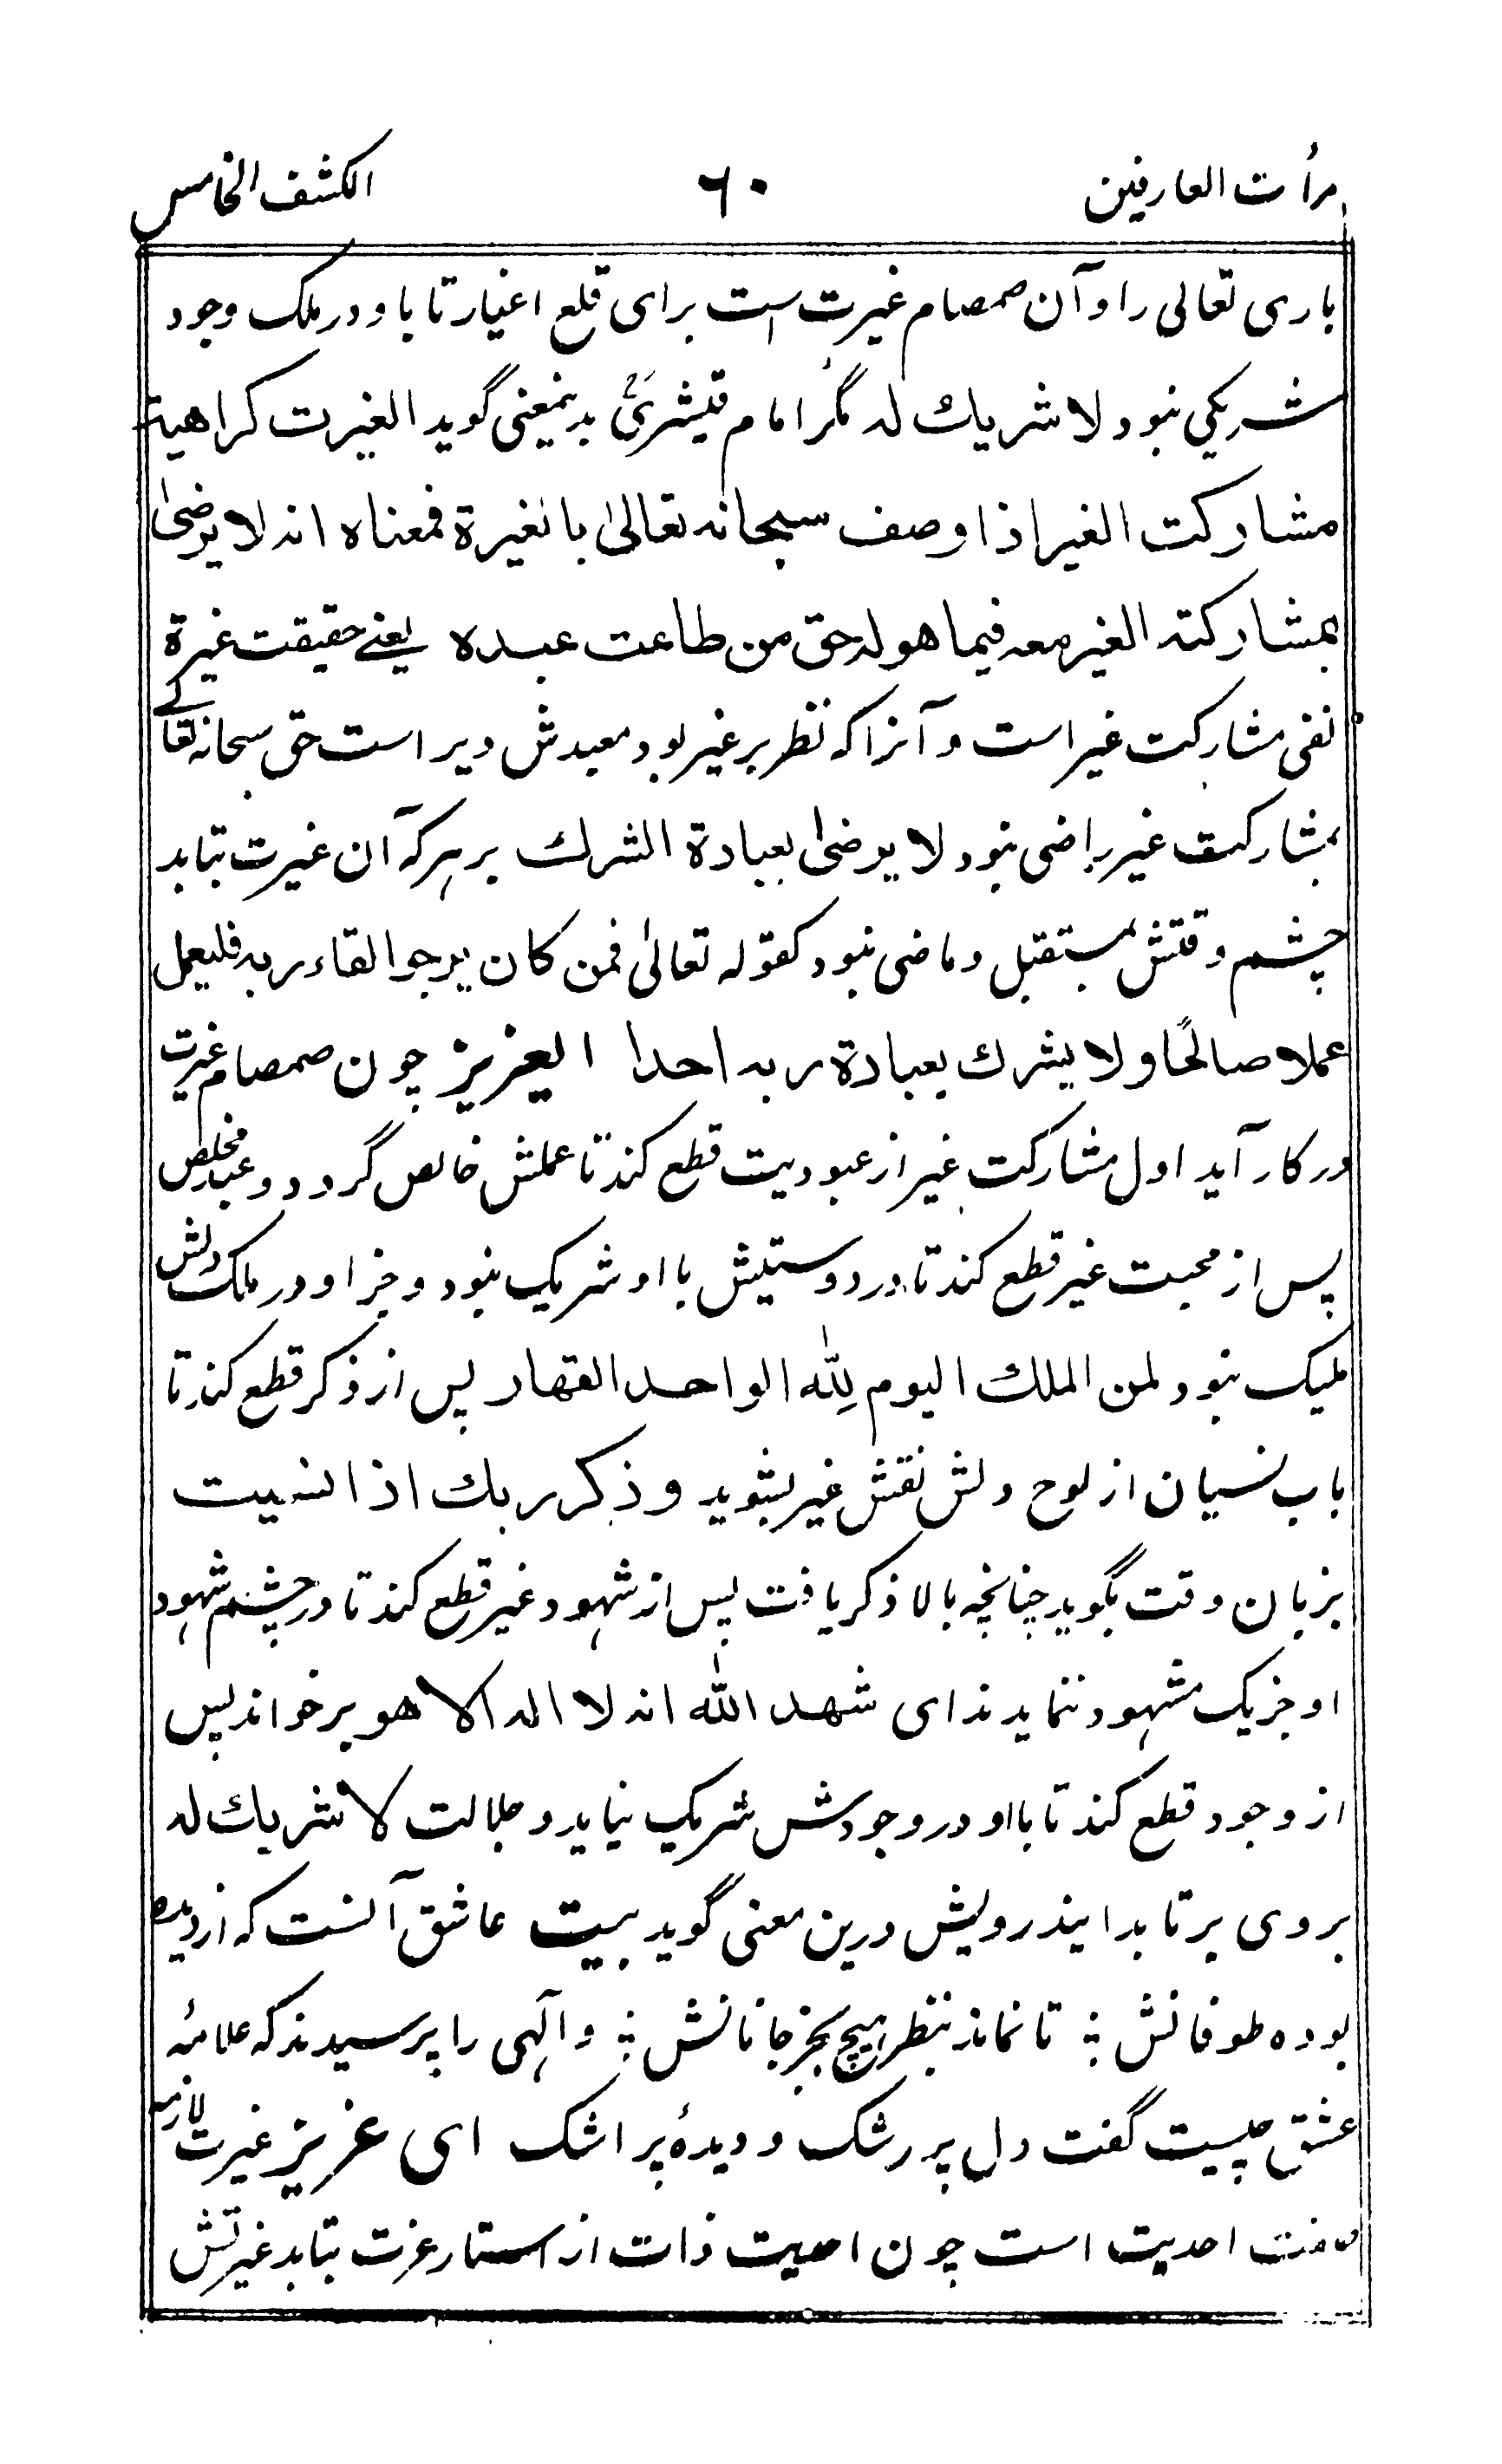 مرأت العارفین ٦٠ الکشف الخامس
باری تعالی را و آن صمصام غیرت است برای قلع اغیار تا با و در ملک وجود
شریکی نبود لا شریك له مگر امام قیشریؒ بدینمعنی گوید الغیرت کراهیة
مشارکت الغیر اذا وصف سبحانه تعالیٰ بالغیرة فمعناه انه لا یرضیٰ
بمشارکته الغیر معه فیما هو له حق من طاعت عبده یعنے حقیقت غیرة
نفی مشارکت غیر است و آنرا که نظر بر غیر بود معبدش دیر است حق سبحانه تعالے
بمشارکت غیر راضی نبود لا یرضیٰ بعبادة الشرك بر هر که آن غیرت بتابد
چشم وقتش بمستقبل و ماضی نبود کقوله تعالیٰ فمن کان یرجوا لقاء ربه فلیعمل
عملا صالحًا و لا یشرك بعبادة ربه احدا العزیز چون صمصام غیرت
در کار آید اول مشارکت غیر از عبودیت قطع کند تا عملش خالص گردد و عبد مخلص
پس از محبت غیر قطع کند تا در دوستیش با او شریک نبود و جز او در ملک دلش
ملیک نبود لمن الملك الیوم لِلّٰه الواحد القهار پس از ذکر قطع کند تا
باب نسیان از لوح دلش نقش غیر بشوید و ذکر ربك اذا نسیت
بزبان وقت بگوید چنانچه بالا ذکر یافت پس از شهود غیر قطع کند تا در چشم شهود
او جز یک مشهود ننماید ندای شهد الله انه لا اله الا هو بر خواند پس
از وجود قطع کند تا با او در وجودش شریک نیاید و جلالت لا شریك له
بروی بر تابد ایندرویش درین معنی گوید بیت عاشق آنست که از دیده
بوده طوفانش ؞ تا نماند بنظر هیچ بجز جانانش ؞ و آلهی را پرسیدند که علامۀ
عشق چیست گفت دل پر رشک و دیدۀ پر اشک ای عزیز غیرت لازمۀ
صفت احدیت است چون احدیت ذات از استار عزت بتابد غیرتش